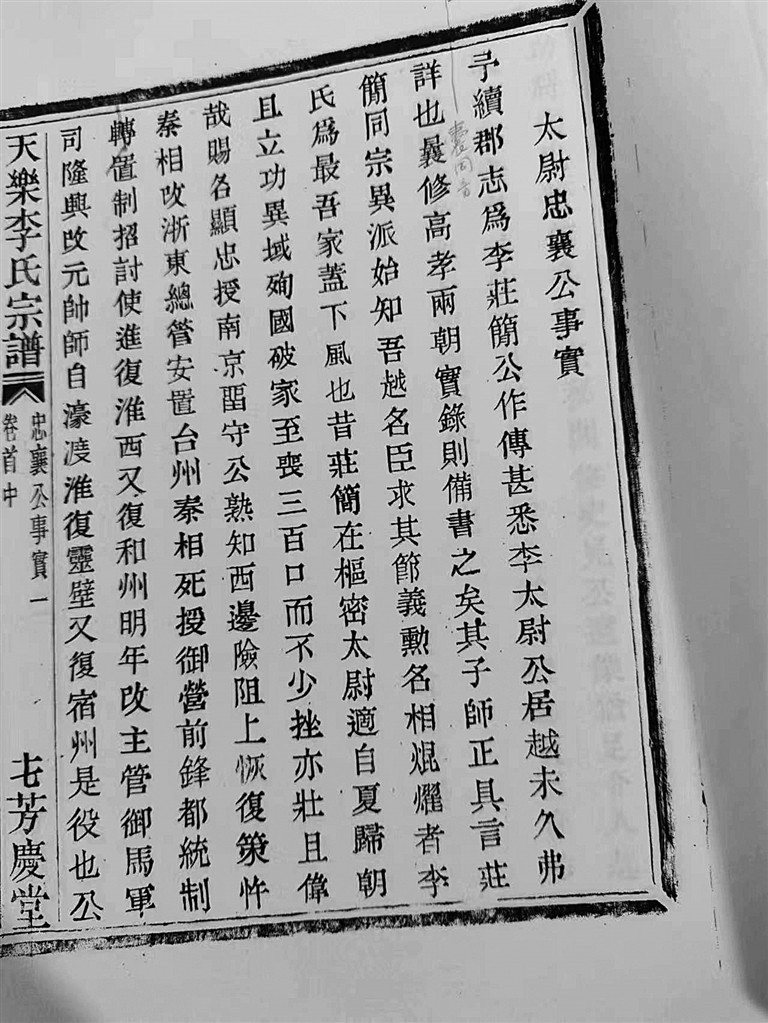 太尉忠襄公事實
予續郡志爲李莊簡公作傳甚悉李太尉公居越未久弗
詳也曩修高孝兩朝實錄則備書之矣其子師正具言莊
簡同宗異派始知吾越名臣求其節義勳名相焜燿者李
氏爲最吾家蓋下風也昔莊簡在樞密太尉適自夏歸朝
且立功異域殉國破家至喪三百口而不少挫亦壯且偉
哉賜名顯忠授南京畱守公熟知西邊險阻上恢復策忤
秦相改浙東總管安置台州秦相死授御營前鋒都統制
轉置制招討使進復淮西又復和州明年改主管御馬軍
司隆興改元帥師自濠渡淮復靈壁又復宿州是役也公
天樂李氏宗譜
忠襄公事實一
卷首中
七芳慶堂